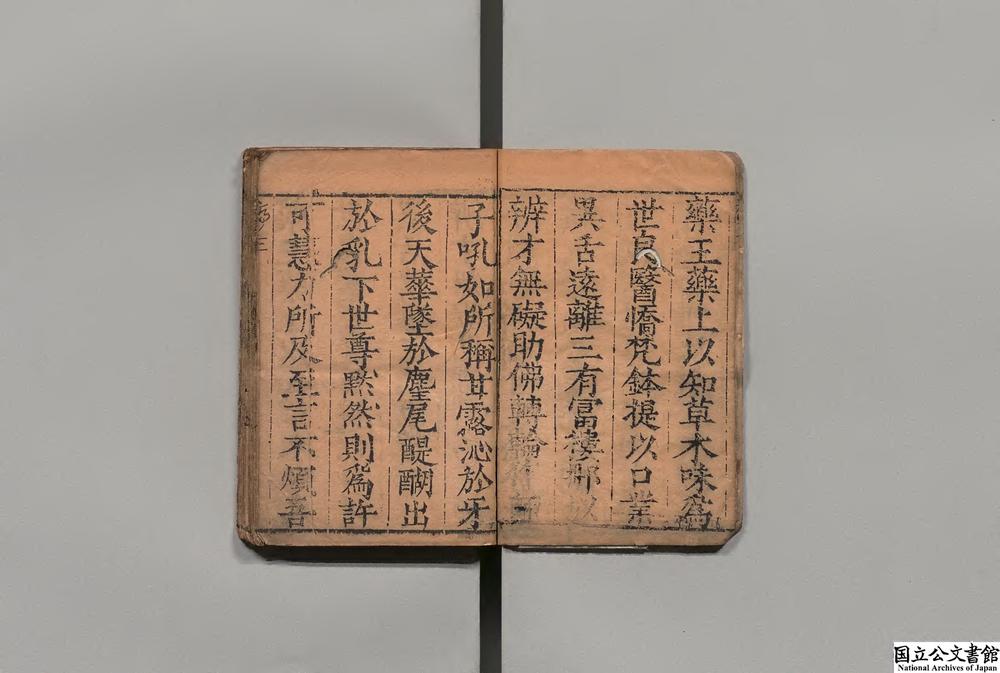 藥王藥上以知草木味爲
世良醫憍梵鉢提以口業
異舌遠離三有富樓那以
辨才無礙助佛轉輪
子吼如所稱甘露沁於牙
後天華墜於麈尾醍醐出
於乳下世尊黙然則爲許
可慧力所及至言不煩吾
国立公文書館
National Archives of Japan